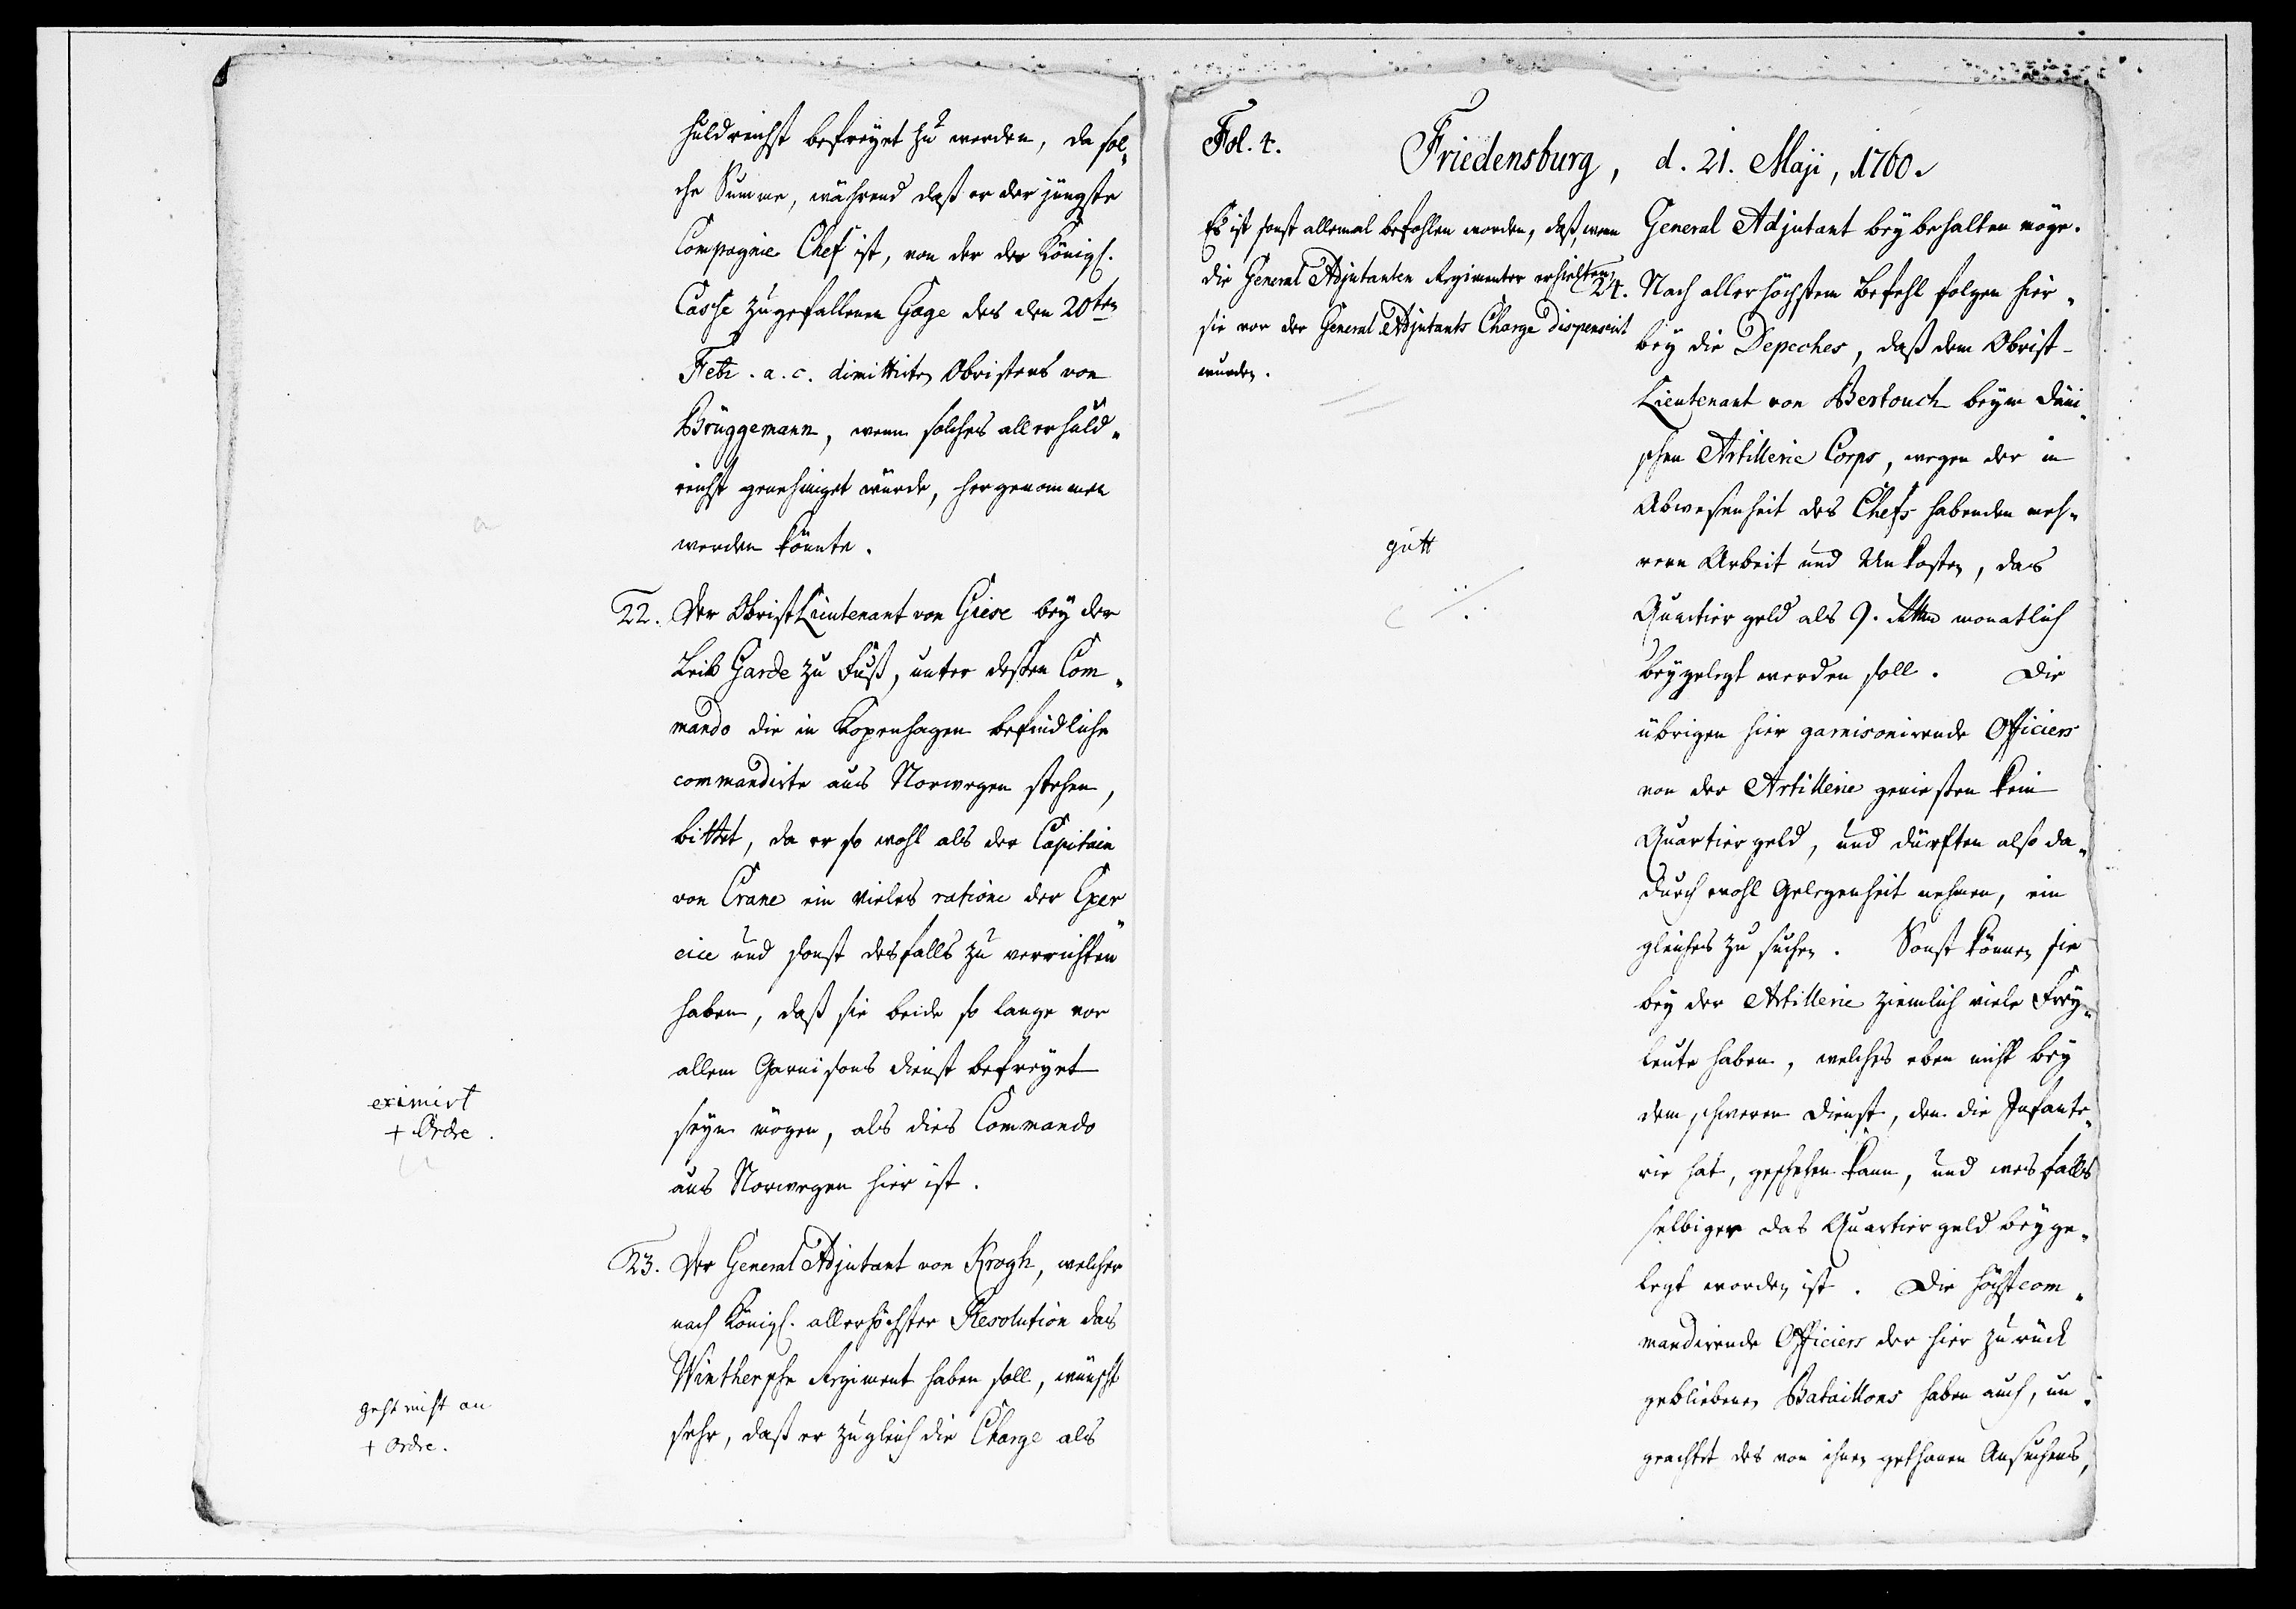 huldreichst befreyet zu werden, da sol„
che Summe, während daß er der jüngste
Compagnie Chef ist, von der der Königl.
Casse zugefallenen Gage des den 20ten
Febr. a. c. dimittirten Obristens von
Brüggemann, wenn solches allerhuld„
reichst genehmiget würde, hergenommen
werden könnte.
22. Der ObristLieutenant von Giese bey der
Leib Garde zu Fuß, unter dessen Com„
mando die in Kopenhagen befindliche
commandirte aus Norwegen stehen,
bittet, da er so wohl als der Capitain
von Crane ein vieles ratione der Exer„
cice und sonst desfalls zu verrichten
haben, daß sie beide so lange vor
allem Garnisons dienst befreyet
eximirt
+ Ordre.
seyn mögen, als dies Commando
aus Norwegen hier ist.
23. Der General Adjutant von Krogh, welcher
nach Königl. allerhöchster Resolution das
Winthersche Regiment haben soll, wünscht
geht nicht an
+ Ordre.
sehr, daß er zugleich die Charge als
Fol. 4.
Friedensburg, d. 21. Maji, 1760.
Es ist sonst allemal befohlen worden, daß, wenn
die General Adjutanten Regimenter erhielten,
sie vor der General Adjutants Charge dispensirt
wurden.
General Adjutant bey behalten möge.
24. Nach allerhöchstem Befehl folgen hier„
bey die Depeches, daß dem Obrist-
Lieutenant von Bertouch beym Däni„
schen Artillerie Corps, wegen der in
Abwesenheit des Chefs habenden meh„
gutt
rern Arbeit und Unkosten, das
Quartier geld als 9. Rthlr monatlich
beygelegt werden soll. Die
übrigen hier garnisonirende Officiers
von der Artillerie geniessen kein
Quartier geld, und dürften also da„
durch wohl Gelegenheit nehmen, ein
gleiches zu suchen. Sonst können sie
bey der Artillerie ziemlich viele Frey„
leute haben, welches eben nicht bey
dem schweren Dienst, den die Infante„
rie hat, geschehen kann, und wesfalls
selbiger das Quartier geld beyge„
legt worden ist. Die höchstcom„
mandirende Officiers der hier zurück
gebliebenen Bataillons haben auch, un„
geachtet des von ihnen gethanen Ansuchens,